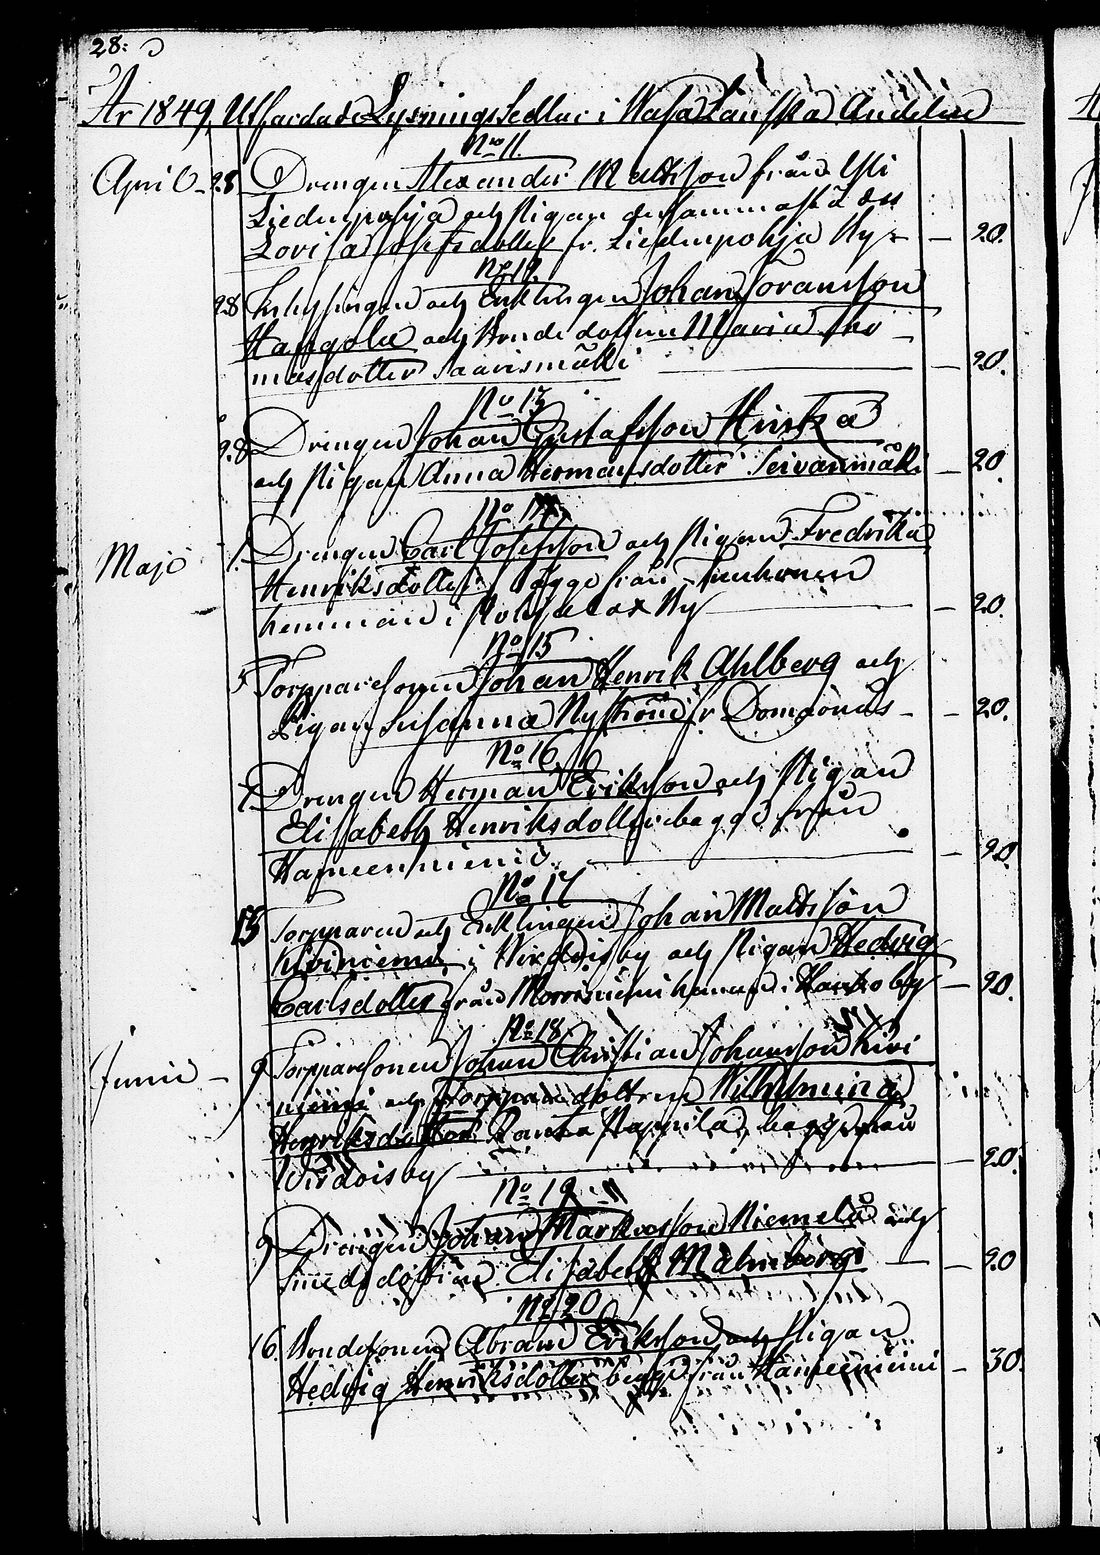 28:
År 1849 Utfärdade Lysnings Sedlar i Wasa Länska Andelen
No 11.
April 28 Drengen Alexander Mattsson från Yli
Liedenpohja och Pigan densammastädes
Lovisa Josefsdotter fr. Liedenpohja By - 20.
No 12.
28 Inhysingen och Enklingen Johan Joransson
Kangola och Bonde dottren Maria Tho
masdotter Saarismäki - 20.
No 13
28 Drengen Johan Gustafsson
och Pigan Anna Hermansdotter - 20
No 14
Majo 1. Drengen Carl Josefsson och Pigan Fredrika
Henriksdotter bägge från
hemman i By - 20.
No 15
5 Torpparesonen Johan Henrik Ahlberg och
Pigan Susanna Nyström fr. - 20.
No 16
7. Drengen Herman Eriksson och Pigan
Elisabeth Henriksdotter begge från
- 20.
No 17
13 Torpparen och Enklingen Johan Mattsson
Kiviniemi i Wirdois by och Pigan Hedvig
Carlsdotter från hemman i by - 20.
No 18.
Junii - 9 Torpparesonen Johan Christian Johansson Kivi
niemi och Torppare dottren Wilhelmina
Henriksdotter begge från
Wirdois by - 20.
No 19
9 Drengen Johan Markusson Niemelä och
Smeds dottren Elisabeth Malmborg - 20
No 20
16. Bondesonen Abram Eriksson och Pigan
Hedvig Henriksdotter begge från - 30.